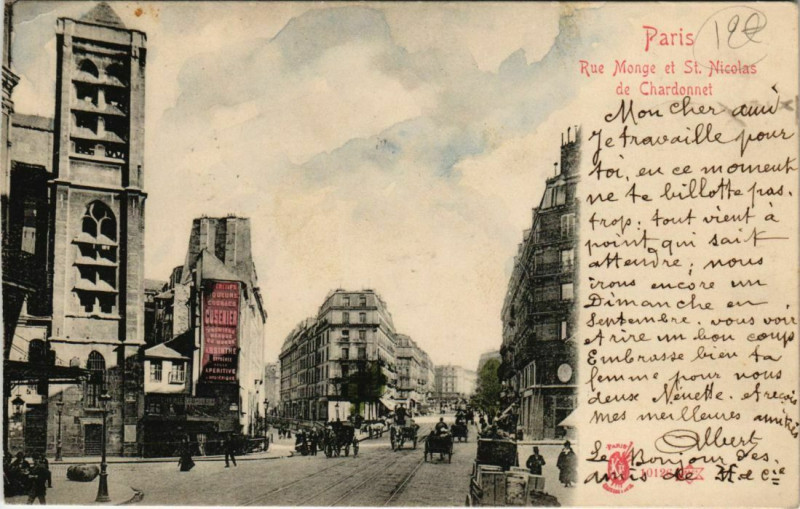 Paris
12e
Rue Monge et St. Nicolas
de Chardonnet
Mon cher ami
Je travaille pour
toi, en ce moment
ne te billotte pas.
trop. tout vient à
point qui sait
attendre; nous
irons encore un
Dimanche en
Septembre. vous voir
et rire un bon coup
Embrasse bien ta
femme pour nous
deux Nénette. et reçois
mes meilleures amitiés
Albert
Le Bonjour des
amis de
CUSENIER
ABSINTHE
APÉRITIVE
PARIS